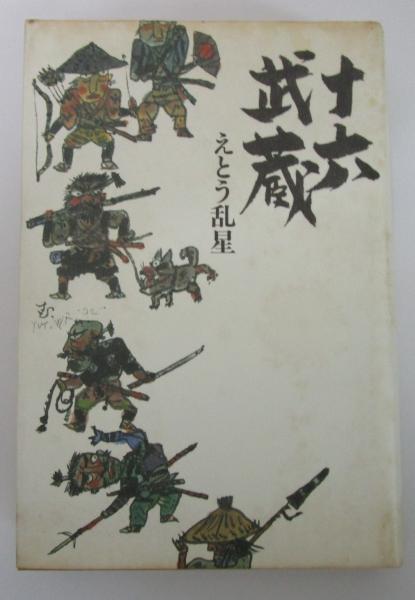 十六
武蔵
えとう乱星